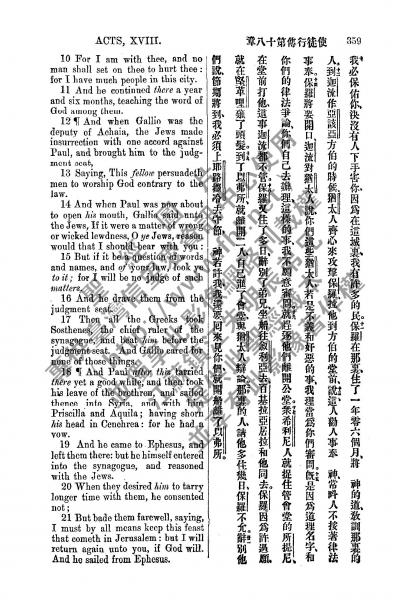 ACTS, XVIII.
使徒行傳第十八章
359
10 For I am with thee, and no
man shall set on thee to hurt thee:
for I have much people in this city.
11 And he continued there a year
and six months, teaching the word of
God among them.
12 ¶ And when Gallio was the
deputy of Achaia, the Jews made
insurrection with one accord against
Paul, and brought him to the judg-
ment seat,
13 Saying, This fellow persuadeth
men to worship God contrary to the
law.
14 And when Paul was now about
to open his mouth, Gallio said unto
the Jews, If it were a matter of wrong
or wicked lewdness, O ye Jews, reason
would that I should bear with you:
15 But if it be a question of words
and names, and of your law, look ye
to it; for I will be no judge of such
matters.
16 And he drave them from the
judgment seat.
17 Then all the Greeks took
Sosthenes, the chief ruler of the
synagogue, and beat him before the
judgment seat. And Gallio cared for
none of those things.
18 ¶ And Paul after this tarried
there yet a good while, and then took
his leave of the brethren, and sailed
thence into Syria, and with him
Priscilla and Aquila; having shorn
his head in Cenchrea: for he had a
vow.
19 And he came to Ephesus, and
left them there: but he himself entered
into the synagogue, and reasoned
with the Jews.
20 When they desired him to tarry
longer time with them, he consented
not;
21 But bade them farewell, saying,
I must by all means keep this feast
that cometh in Jerusalem: but I will
return again unto you, if God will.
And he sailed from Ephesus.
我必保佑你、決沒有人下手害你、因爲在這城裏、我有許多的民。保羅在那裏住了一年零六個月、將 神的道敎訓那裏的
人。到迦流作亞該亞方伯的時候、猶太人齊心來攻擊保羅、拉他到方伯的堂前、說、這人勸人事奉 神、常呌人不按著律法。
保羅將要開口、迦流對猶太人說、你們這些猶太人、若是不義和奸惡的事、我理當爲你們審問。旣是因爲道理名字、和
你們的律法爭論、你們自己去辦理、這樣的事我不願意審問。就趕逐他們離開公堂。衆希利尼人就捉住管會堂的所提尼、
在堂前打他、這事迦流都不管。保羅又住了多日、辭別了弟兄、坐船往敘利亞去、百基拉亞居拉和他同去、保羅因爲許過願、
就在堅革理薙了頭髮。到了以弗所、就離開二人、自己進了會堂、與猶太人辯論。那裏的人請他多住幾日、保羅不允、辭別他
們說、節期將到、我必須上耶路撒冷去守節、 神若許我、我還要回來見你們、就開船離了以弗所。